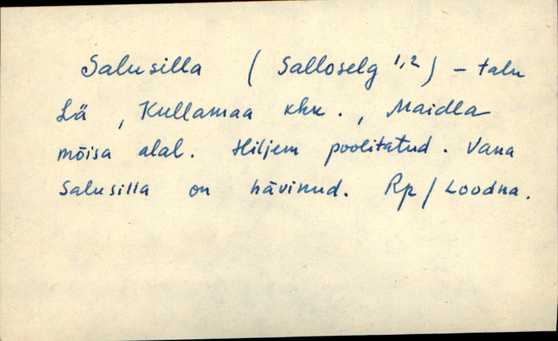 Salusilla (Salloselg 1,2) – talu
Lä, Kullamaa khk., Maidla
mõisa alal. Hiljem poolitatud. Vana
Salusilla on hävinud. Rp/Loodna.